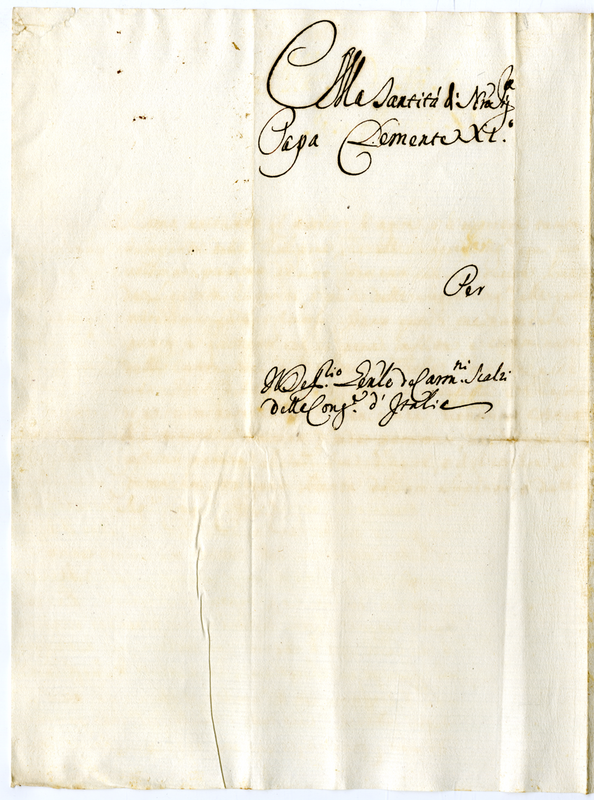 Alla Santità di Nrõ Sig.re
Papa Clemente XI.º
Per
Il Def.rio Gen̄le de Carm.ni Scalzi
della Cong.e d'Italia